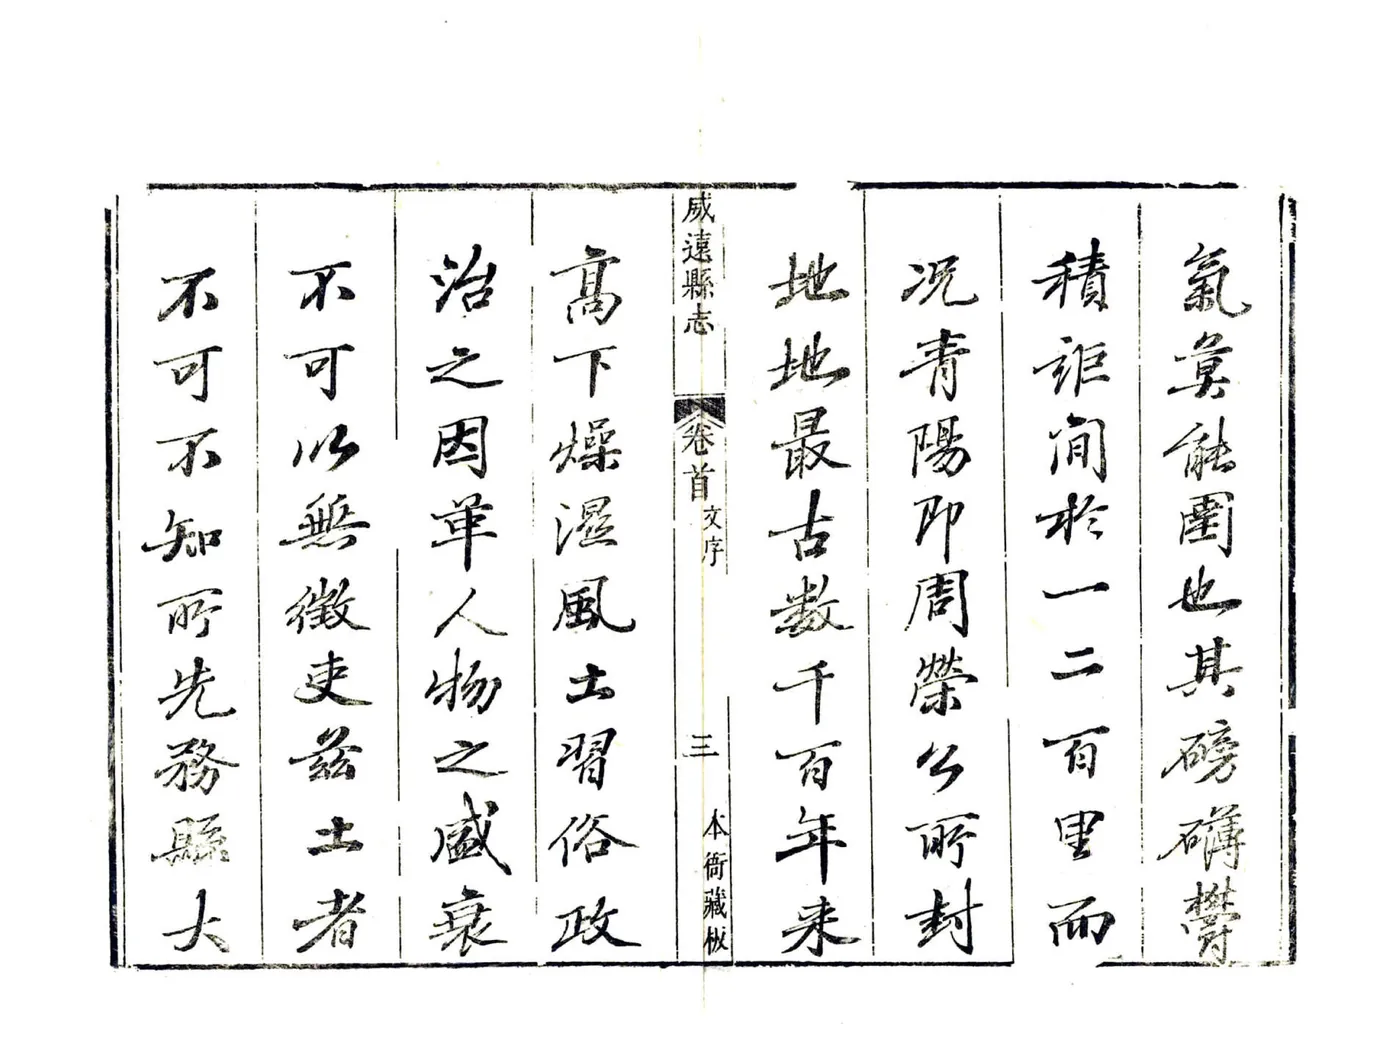 氣莫能圉也其磅礴鬱
積詎間於一二百里而
况青陽即周榮公所封
地地最古数千百年来
威遠縣志
卷首
文序
三
本衙藏板
高下燥濕風土習俗政
治之因革人物之盛衰
不可以無徵吏兹土者
不可不知所先務縣大